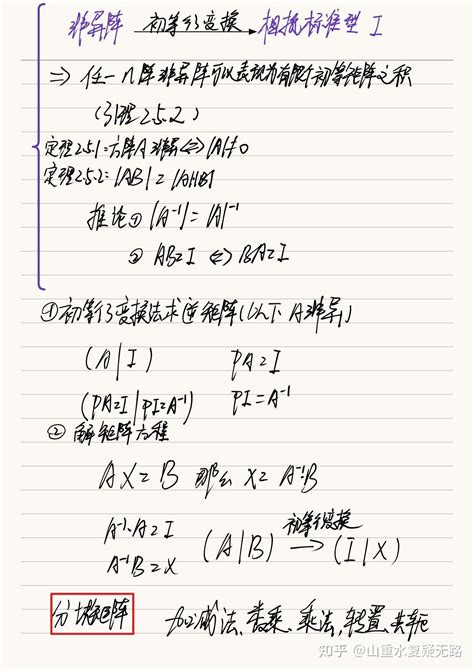 非异阵 初等行变换 相抵标准型 I
⇒ 任一n阵非异阵可以表现为有限个初等矩阵之积
(引理2.5.2)
定理2.5.1:方阵A非异⇔|A|≠0
定理2.5.2:|AB|=|A||B|
推论① |A⁻¹|=|A|⁻¹
② AB=I ⇔ BA=I
①初等行变换法求逆矩阵(以下A非异)
(A|I) PA=I
(PA=I|PI=A⁻¹) PI=A⁻¹
② 解矩阵方程
AX=B 那么 X=A⁻¹B
A⁻¹·A=I
初等行变换
(A|B) → (I|X)
A⁻¹B=X
分块矩阵 加减法、数乘、乘法、转置、共轭
知乎 @山重水复疑无路